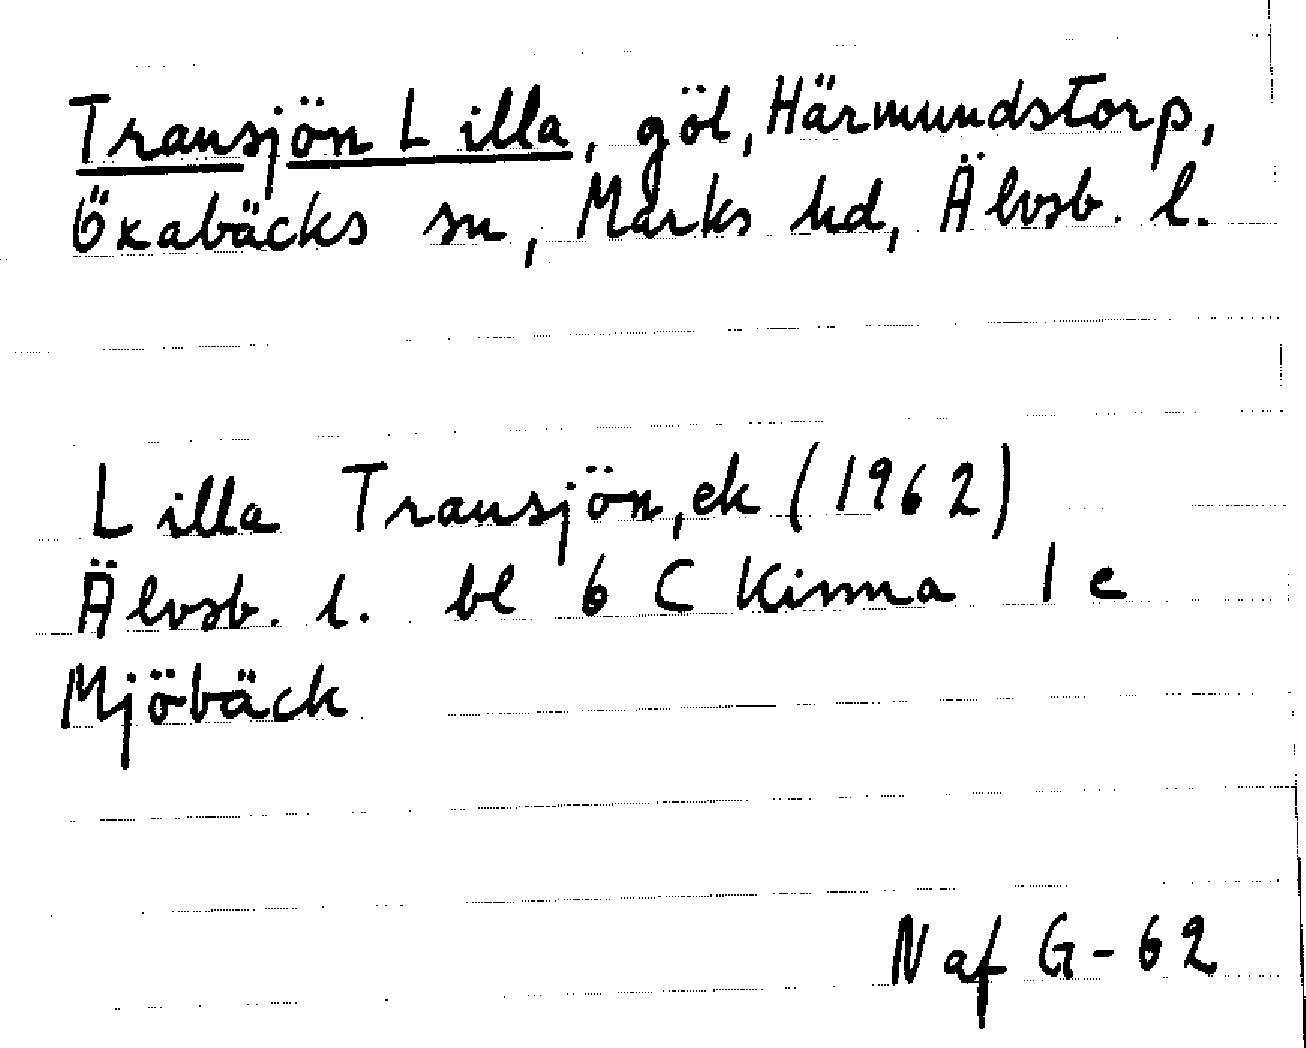 Transjön Lilla, göl, Härmundstorp,
Öxabäcks sn, Marks hd, Älvsb. l.
Lilla Transjön, ek (1962)
Älvsb. l. bl 6 C Kinna 1 e
Mjöbäck
Naf G-62